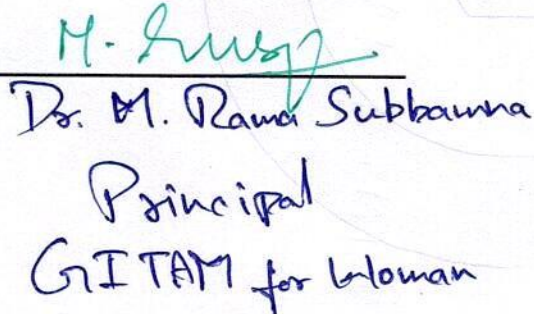 M.
Dr. M. Rama Subbamma
Principal
GITAM for Woman